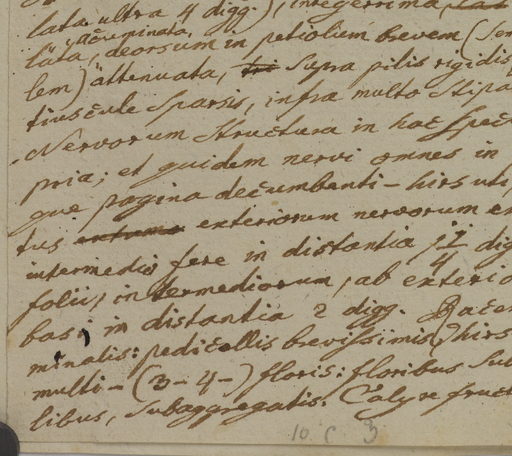 lata ultra 4 digg.), integerrima,
acuminata,
lata, deorsum in petiolum brevem (sem
lem) attenuata, supra pilis rigidis
tiuscule sparsis, infra multo stipa
Nervorum structura in hac speci
pria; et quidem nervi omnes in
que pagina decumbenti-hirsuti,
tus exteriorum nervorum ex
intermedii fere in distantia dig
folii, intermediorum, ab exterio
bas, in distantia 2 digg. Racem
minalis: pedicellis brevissimis, hirs
multi- (3-4-) floris: floribus sub
libus, subaggregatis. Calyx fruct
10 c 3